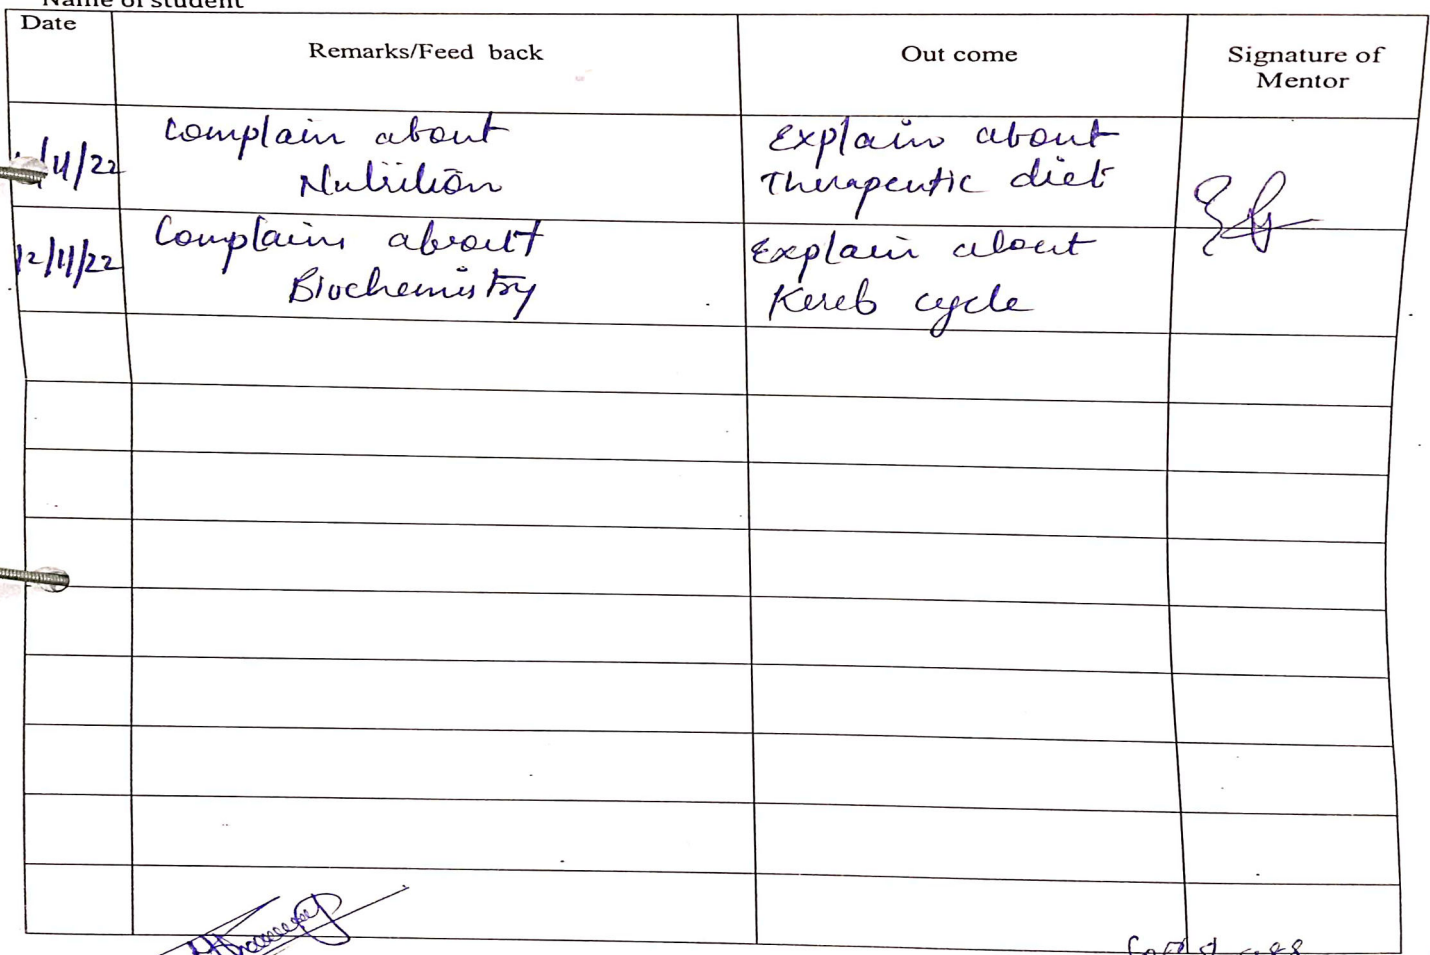 Name of student
Date
Remarks/Feed back
Out come
Signature of
Mentor
Complain about
Nutrition
Explain about
Therapeutic diet
12/11/22
Complains about
Biochemistry
Explain about
Kereb cycle